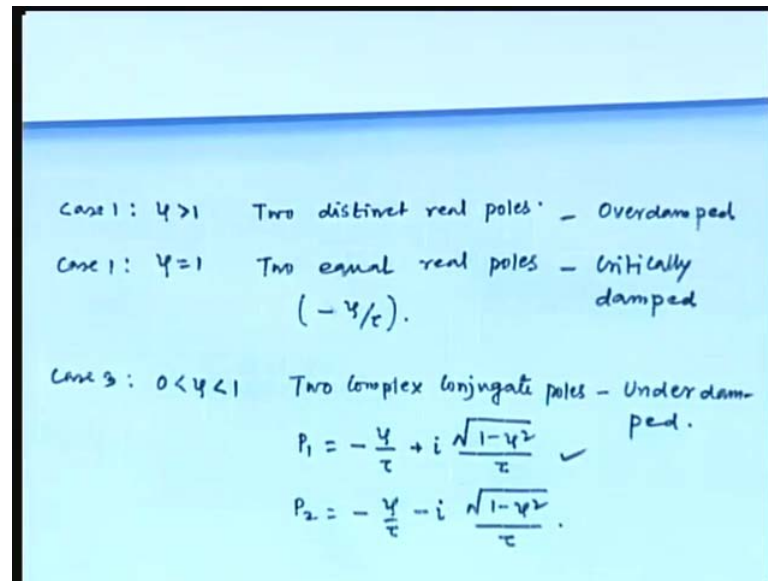 Case 1: ψ>1 Two distinct real poles. - Overdamped
Case 1: ψ=1 Two equal real poles - Critically
damped
(-ψ/τ).
Case 3: 0<ψ<1 Two Complex Conjugate poles - Underdam-
ped.
P₁ = -ψ/τ + i √(1-ψ²)/τ ✓
P₂ = -ψ/τ - i √(1-ψ²)/τ .